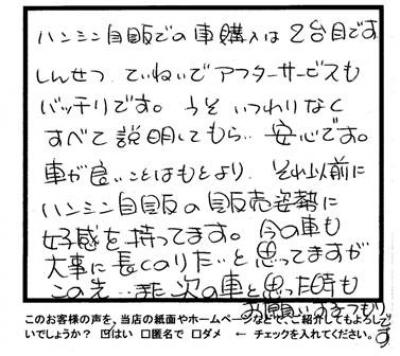 ハンシン自販での車購入は2台目です
しんせつ、ていねいでアフターサービスも
バッチリです。うそいつわりなく
すべて説明してもらい安心です。
車が良いことはもとより、それ以前に
ハンシン自販の販売姿勢に
好感を持ってます。今の車も
大事に長くのりたいと思ってますが
この先…また次の車と思った時も
お願いするつもりです
このお客様の声を、当店の紙面やホームページなどで、ご紹介してもよろし
いでしょうか? ☑はい □匿名で □ダメ ← チェックを入れてください。